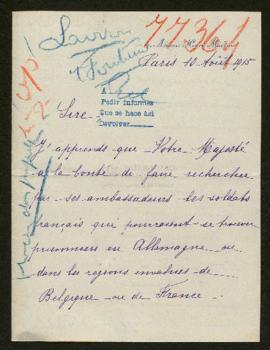 77364
Paris 10 Août 1915
A
Pedir informes
Que se hace así
Devolver
Sire
J'apprends que Votre Majesté
a la bonté de faire rechercher
par ses ambassadeurs les soldats
français qui pourraient se trouver
prisonniers en Allemagne ou
dans les régions envahies de
Belgique ou de France.